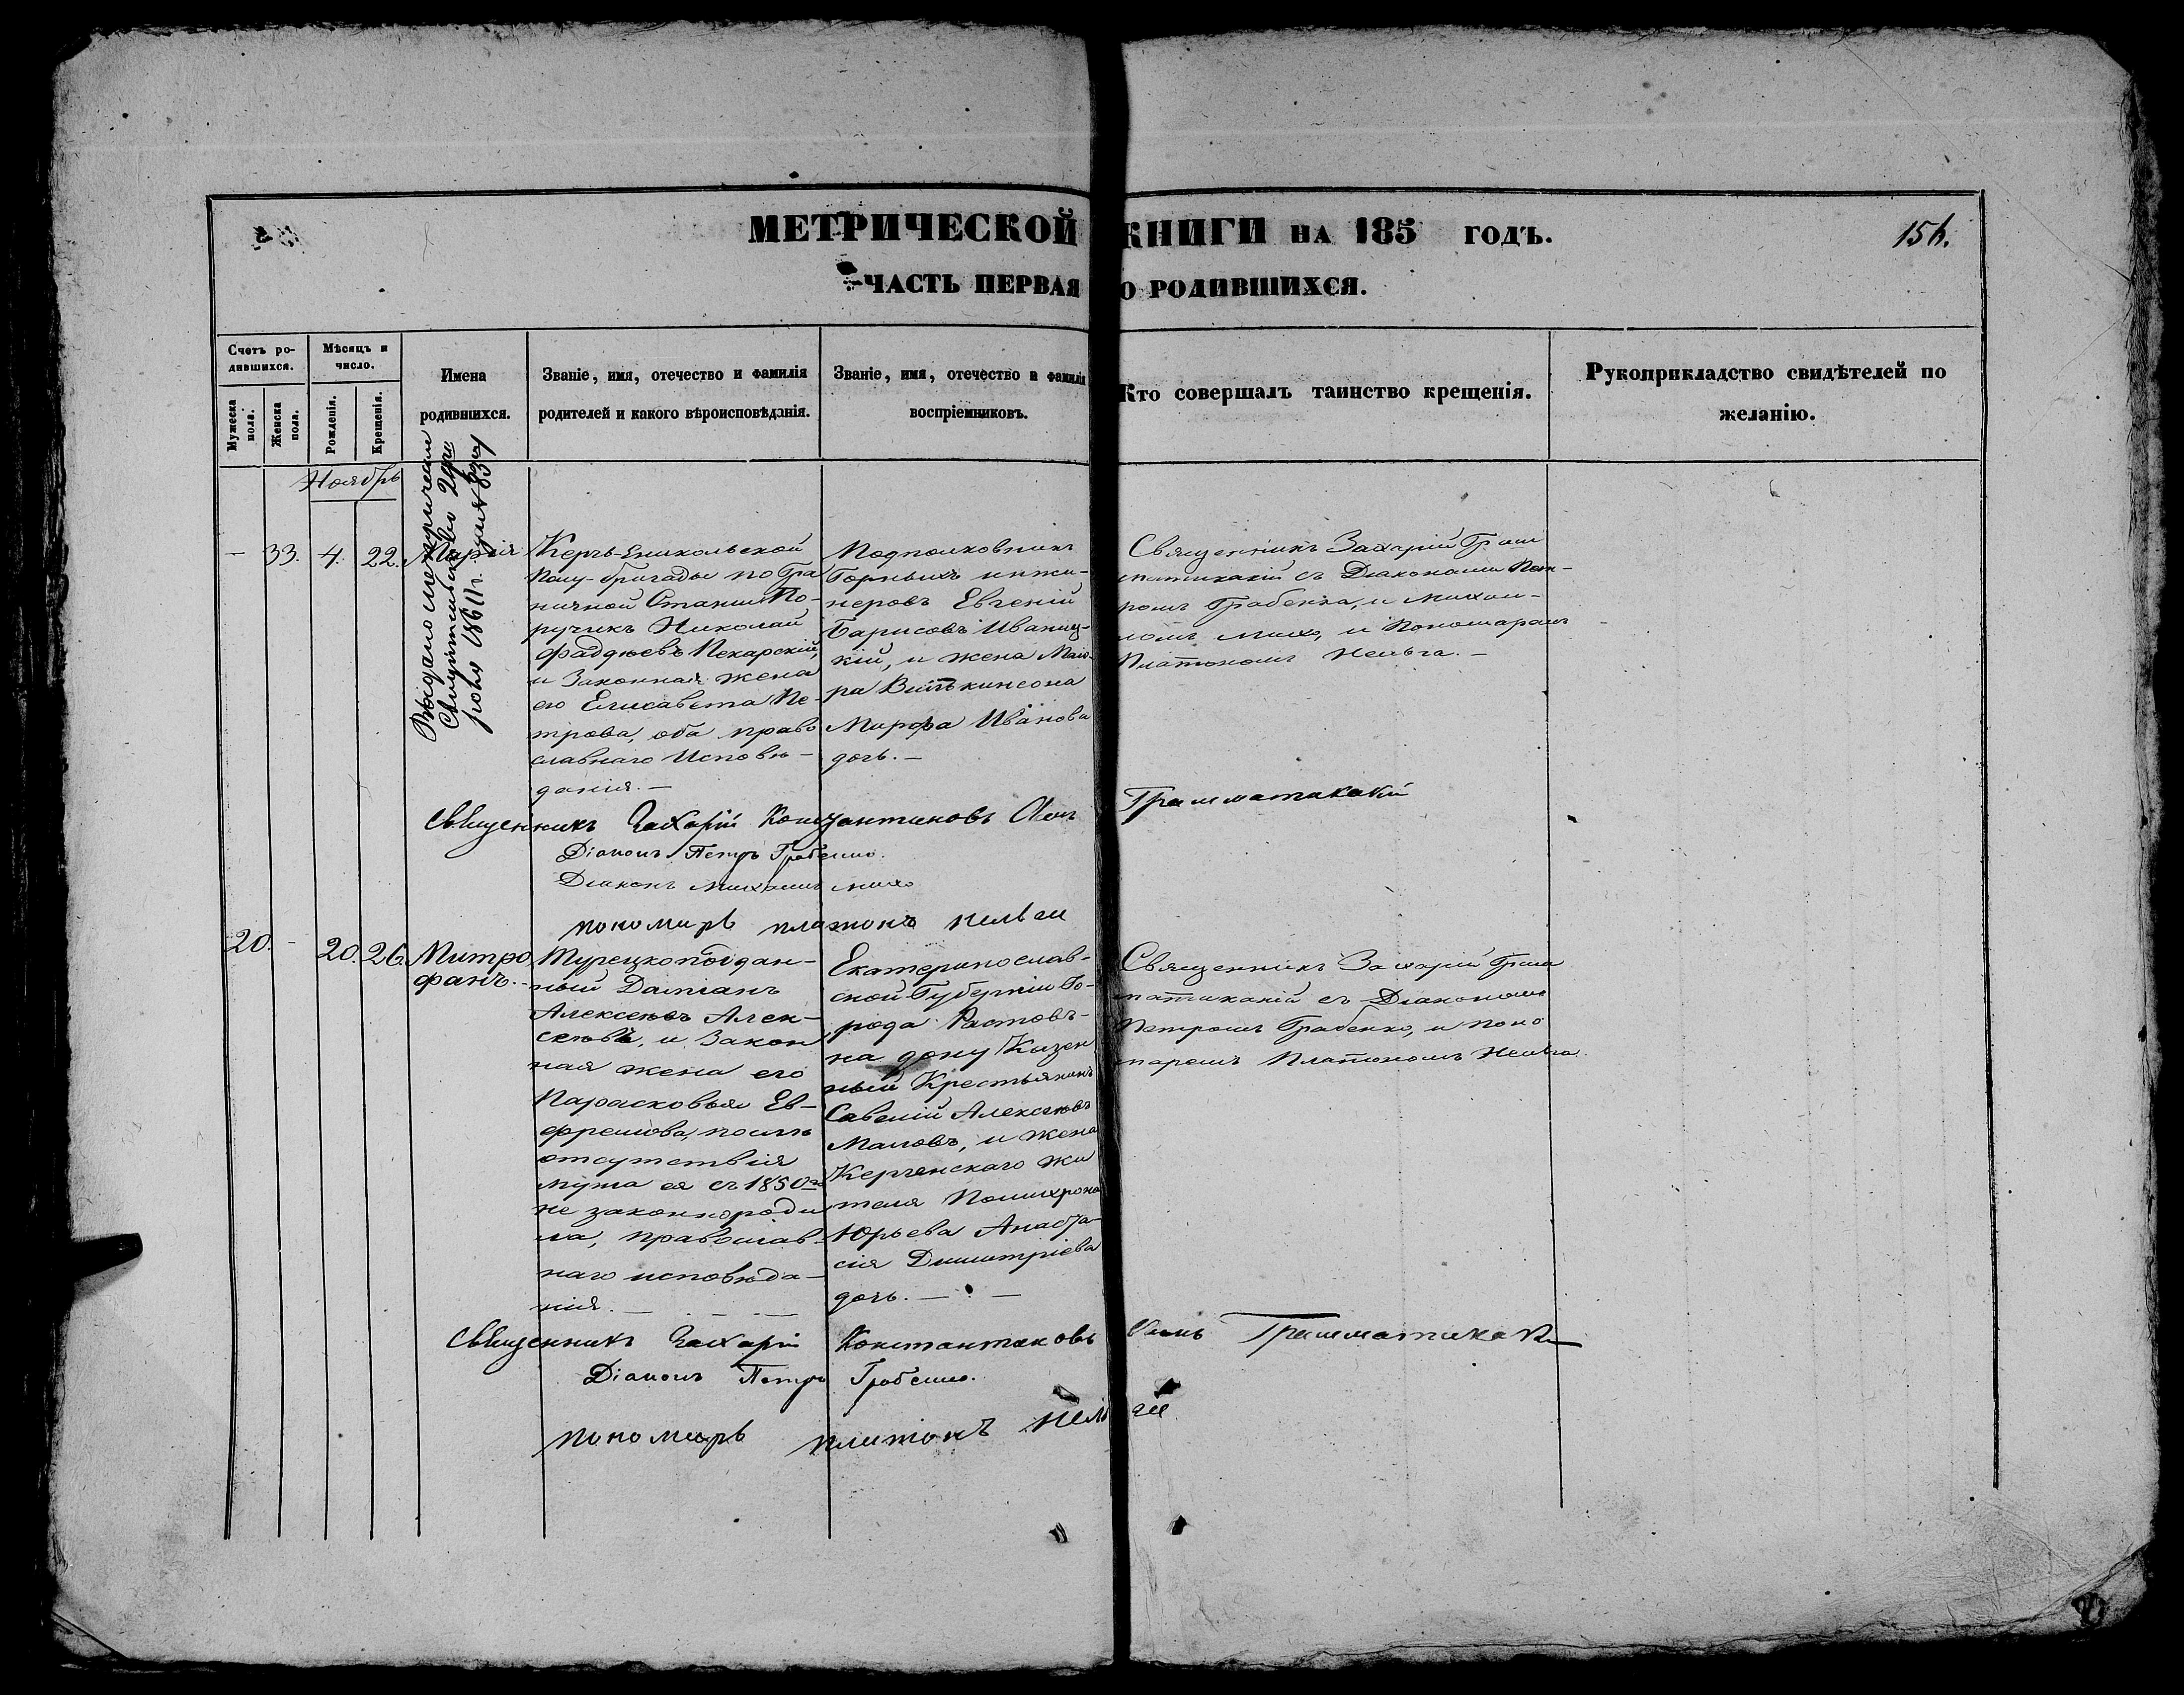 МЕТРИЧЕСКОЙ КНИГИ НА 185 ГОДЪ.
156.
ЧАСТЬ ПЕРВАЯ О РОДИВШИХСЯ.
Счетъ ро-
дившихся.
Мужеска
пола.
Женска
пола.
Мѣсяцъ и
число.
Рожденія.
Крещенія.
Имена
родившихся.
Званіе, имя, отечество и фамилія
родителей и какого вѣроисповѣданія.
Званіе, имя, отечество и фамилія
воспріемниковъ.
Кто совершалъ таинство крещенія.
Рукоприкладство свидѣтелей по
желанію.
Ноябрь
Выдано метрическое
Свидетельство
— 33. 4. 22. Марія
Керчь-Еникольской
Полу-бригады по Гра
ничной Стражи По-
ручикъ Николай
Фаддѣевъ Пекарскій,
и Законная жена
его Елисавета Пе-
трова, оба право
славнаго Исповѣ-
данія. —
Подполковникъ
Горныхъ инжи-
неровъ Евгеній
Борисовъ Иваниц-
кій, и жена Маіо-
ра Вилькинсона
Марфа Иванова
дочь. —
Священникъ Захарій Грам
матикакій съ Діаконами Пет-
ромъ Грабенко, и Михаи-
ломъ Михо, и Пономаремъ
Платономъ
Священникъ Захарій Константиновъ Сынъ Грамматикакій
Діаконъ Петръ Грабенко.
Діаконъ Михаилъ Михо
пономарь платонъ
20. - 20. 26. Митро
фанъ. -
Турецкоподдан-
ный Даміанъ
Алексѣевъ Алек-
сѣевъ, и Закон
ная жена его
Парасковья Ев-
фремова, послѣ
отсутствія
мужа ея съ 1850го
не законно роди
ла, православ-
наго исповѣда-
нія. —
Екатеринослав-
ской Губерніи Го-
рода Растовъ-
на дону Казен
ный Крестьянинъ
Савелій Алексѣевъ
Маловъ, и жена
Керченскаго жи
теля Полихрона
Юрьева Анаста-
сія Димитріева
дочь. —
Священникъ Захарій Грам
матикакій съ Діакономъ
Петромъ Грабенко, и поно
маремъ Платономъ
Священникъ Захарій Константиновъ Сынъ Грамматикакій
Діаконъ Петръ Грабенко.
пономарь платонъ